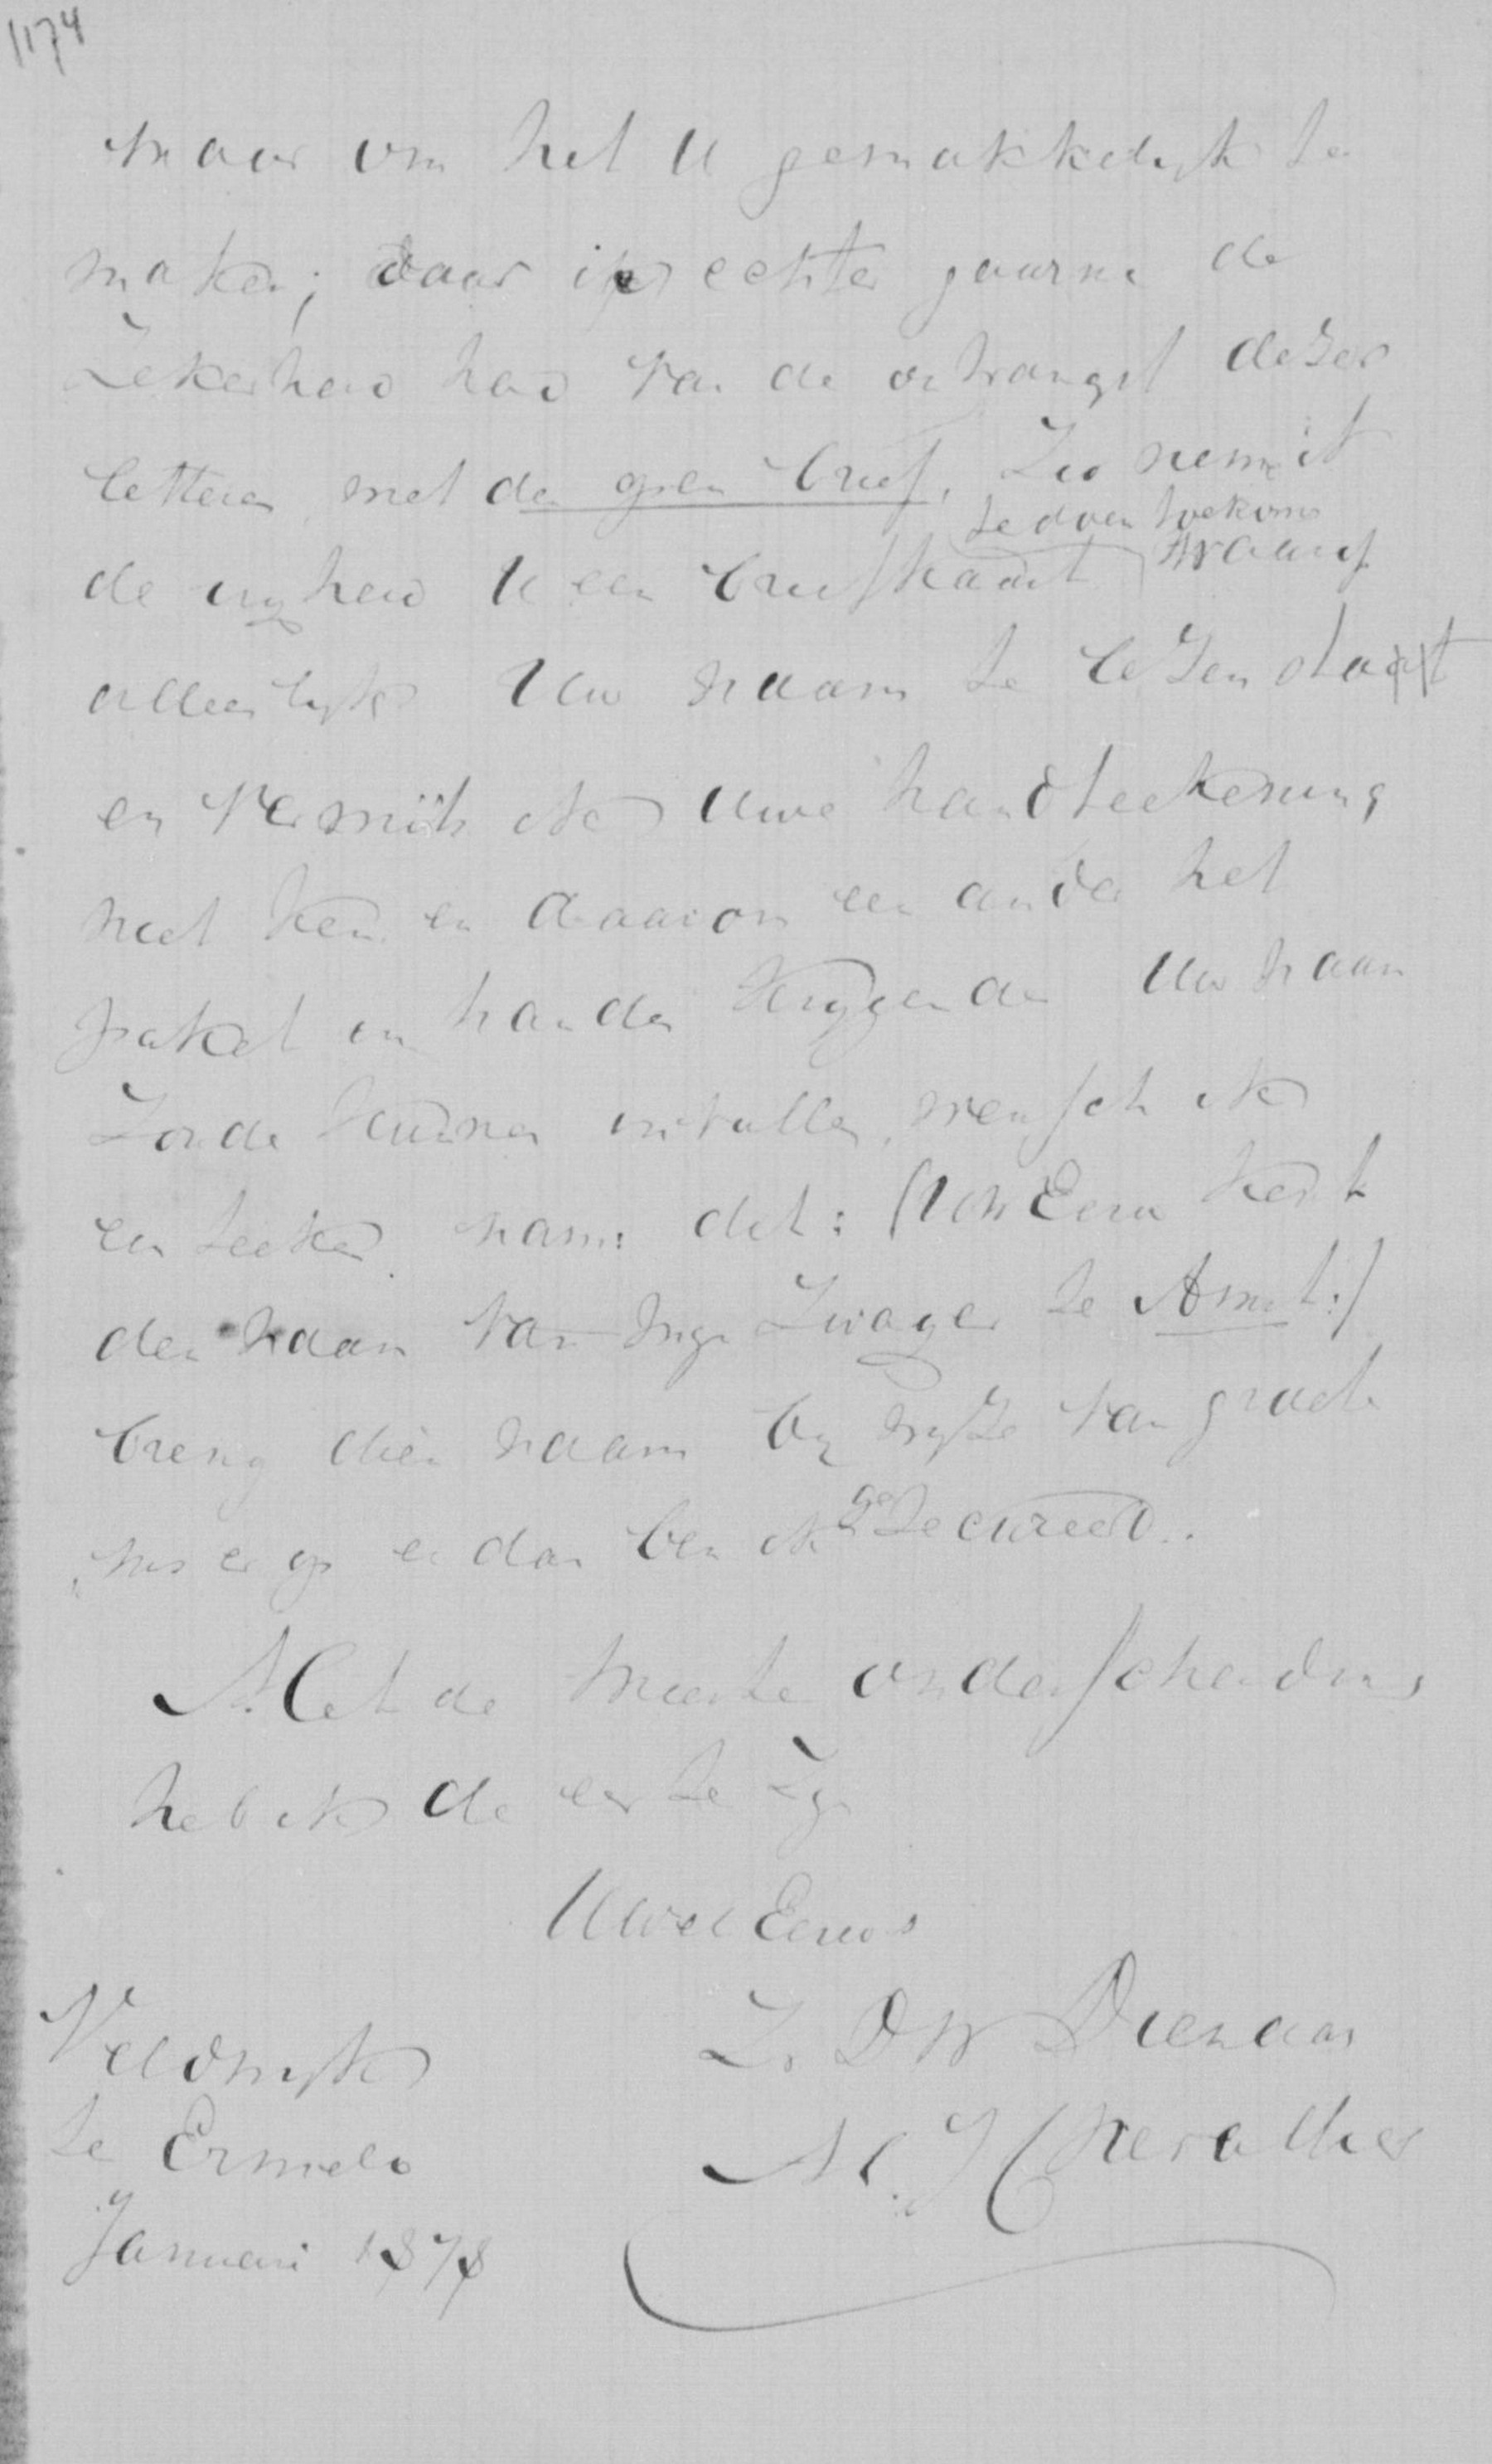 1174
maar om het U gemakkelijk te
maken; daar ik echter gaarne de
Zekerheid had van de ontvangst dezer
letteren, met den gelen brief, Zoo neem ik
te doen toekomen
de vrijheid U een briefkaart waarop
alleenlijk Uw naam te lezen staat
en vermits ik Uwe handteekening
niet ken en daarom een ander het
paket in handen krijgende Uw naam
Zoude kunnen invullen, wensch ik
een teeken. nam: dit: (Uw Eerw kent
den naam van mijn Zwager te Amst:)
breng dien naam bij wijze van
er op en dan ben ik gesecureerd.
Met de meeste onderscheiding
heb ik de eer te zijn
UwelEerws
Z. DW Dienaar
Veldwijk
te Ermelo
Januari 1878